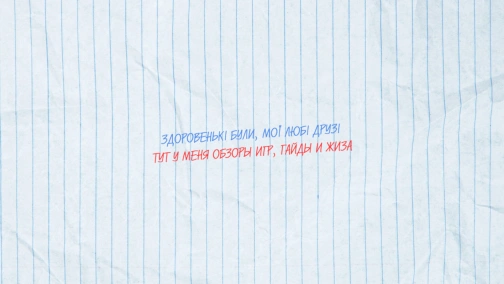 ЗДОРОВЕНЬКІ БУЛИ, МОЇ ЛЮБІ ДРУЗІ
ТУТ У МЕНЯ ОБЗОРЫ ИГР, ГАЙДЫ И ЖИЗА